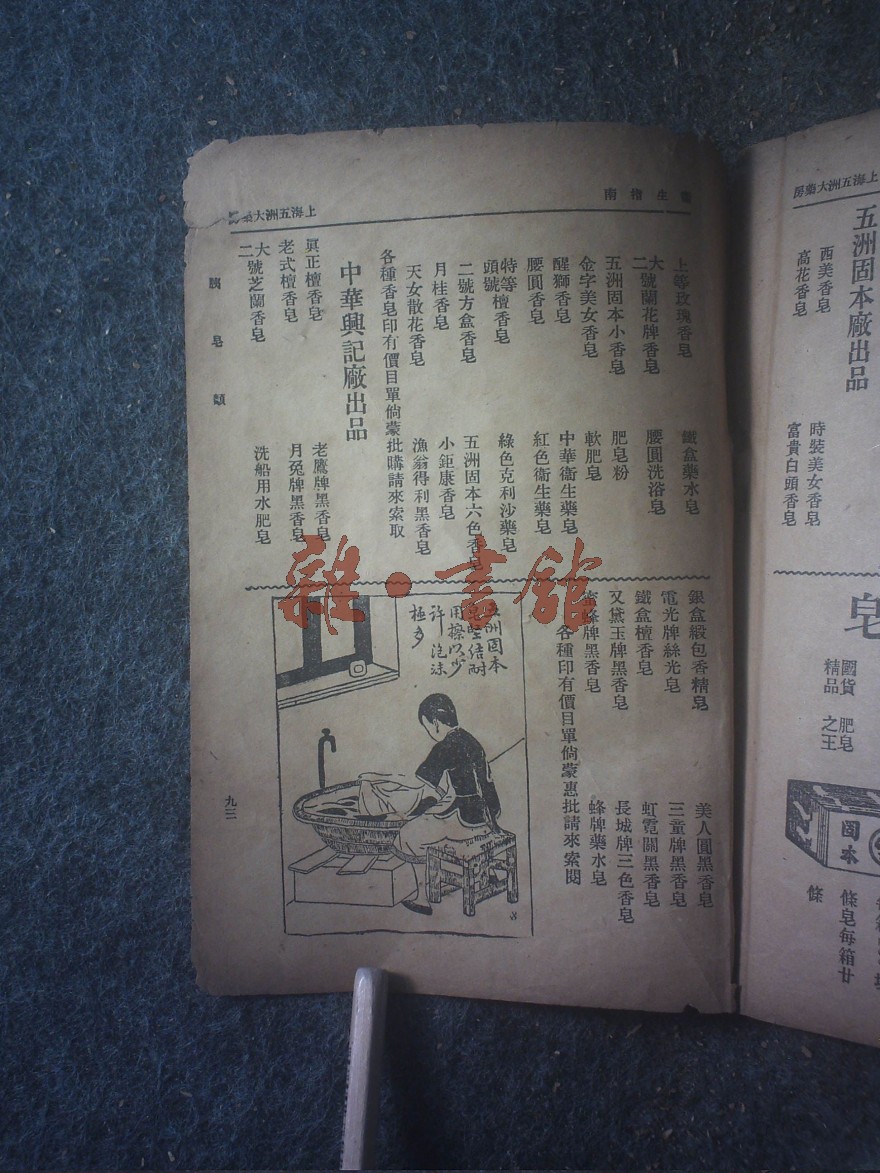 上海五洲大藥房
五洲固本廠出品
西美香皂
高花香皂
時裝美女香皂
富貴白頭香皂
皂
國貨
精品
肥皂
之王
固本
條皂每箱廿
條
生指南
上海五洲大藥
上等玫瑰香皂
大
二號蘭花牌香皂
五洲固本小香皂
金字美女香皂
醒獅香皂
腰圓香皂
特等
頭號檀香皂
二號方盒香皂
月桂香皂
天女散花香皂
鐵盒藥水皂
腰圓洗浴皂
肥皂粉
軟肥皂
中華衞生藥皂
紅色衞生藥皂
綠色克利沙藥皂
五洲固本六色香皂
小鉅康香皂
漁翁得利黑香皂
各種香皂印有價目單倘蒙批購請來索取
中華興記廠出品
眞正檀香皂
老式檀香皂
大
二號芝蘭香皂
老鷹牌黑香皂
月兔牌黑香皂
洗船用水肥皂
銀盒緞包香精皂
電光牌絲光皂
鐵盒檀香皂
又黛玉牌黑香皂
蜜蜂牌黑香皂
美人圓黑香皂
三童牌黑香皂
虹霓關黑香皂
長城牌三色香皂
蜂牌藥水皂
各種印有價目單倘蒙惠批請來索閱
五洲固本
皂堅結耐
用擦以少
許泡沫
極多
胰皂類
九三
雜·書館